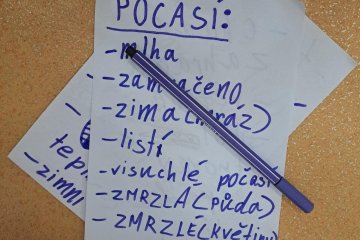 POČASÍ:
-mlha
-zamračeno
-zima(mráz)
-listí
-visuchlé počasí
-ZMRZLÁ(PŮDA)
-ZMRZLÉ(KVĚTINY)
-zimní